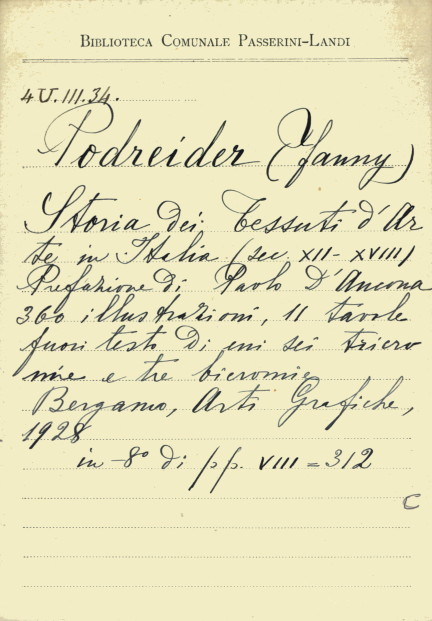 BIBLIOTECA COMUNALE PASSERINI-LANDI
4U.III.34.
Podreider (Fanny)
Storia dei Tessuti d'Ar
te in Italia (sec. XII - XVIII)
Prefazione di Paolo D'Ancona
360 illustrazioni, 11 tavole
fuori testo di cui sei tricro
mie e tre bicromie
Bergamo, Arti Grafiche,
1928
in -8° di pp. VIII = 312
C